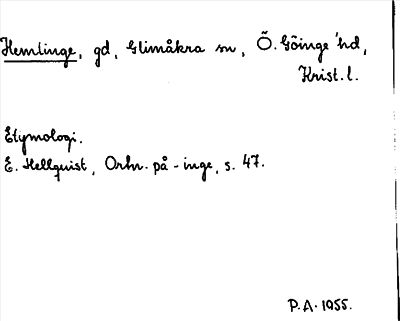 Hemlinge, gd, Glimåkra sn, Ö. Göinge hd,
Krist. l.
Etymologi.
E. Hellquist, Ortn. på -inge, s. 47.
P.A. 1955.